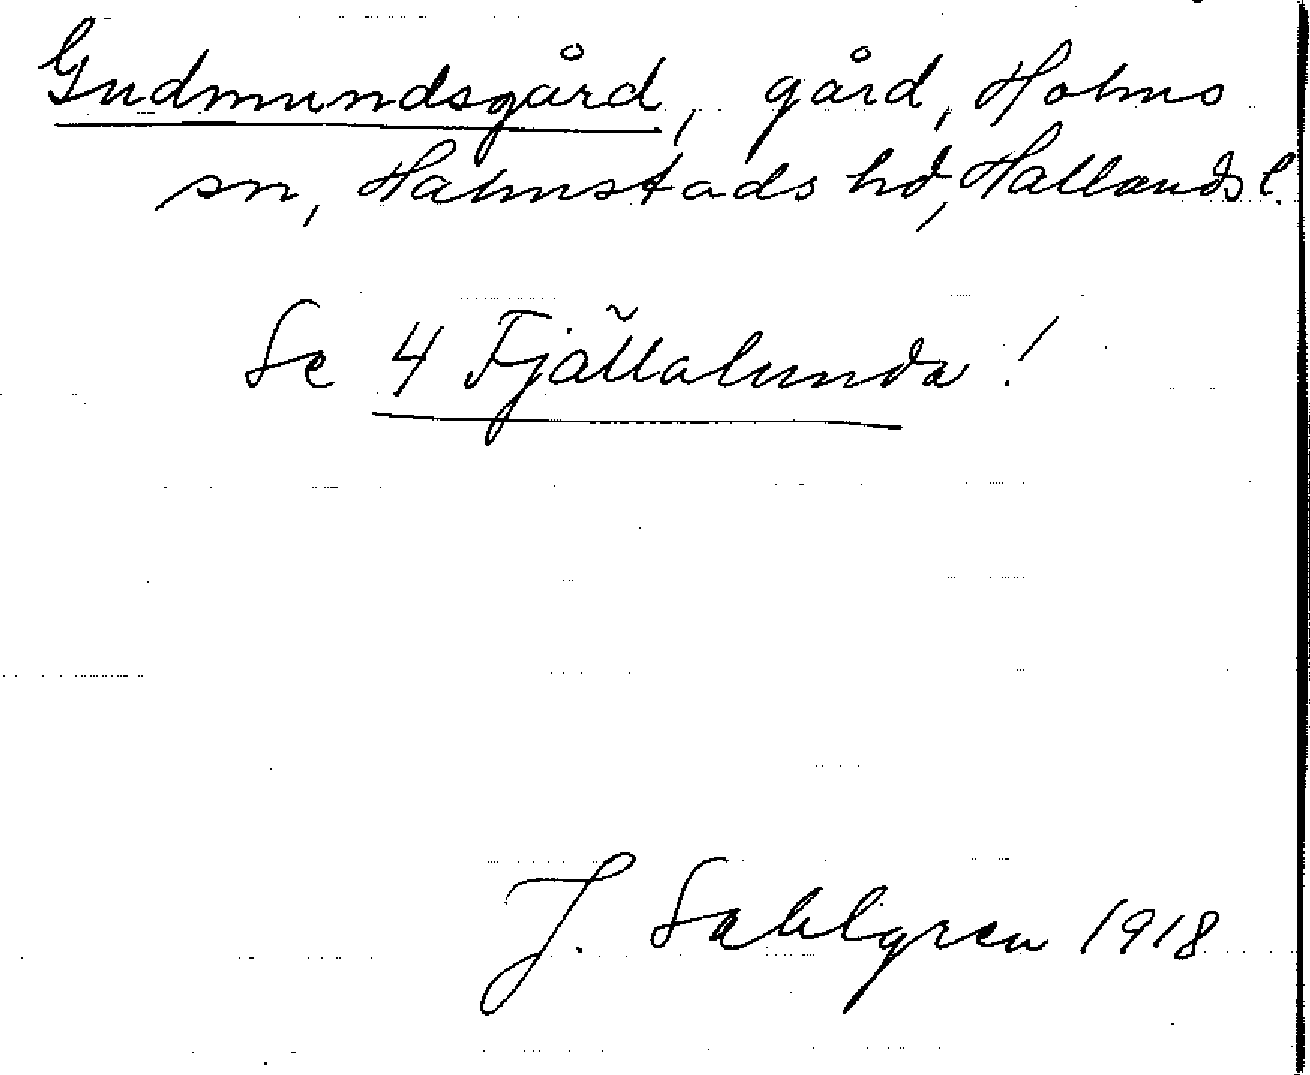 Gudmundsgård, gård, Holms
sn, Halmstads hd, Hallands l.
Se 4 Fjällalunda!
J. Sahlgren 1918